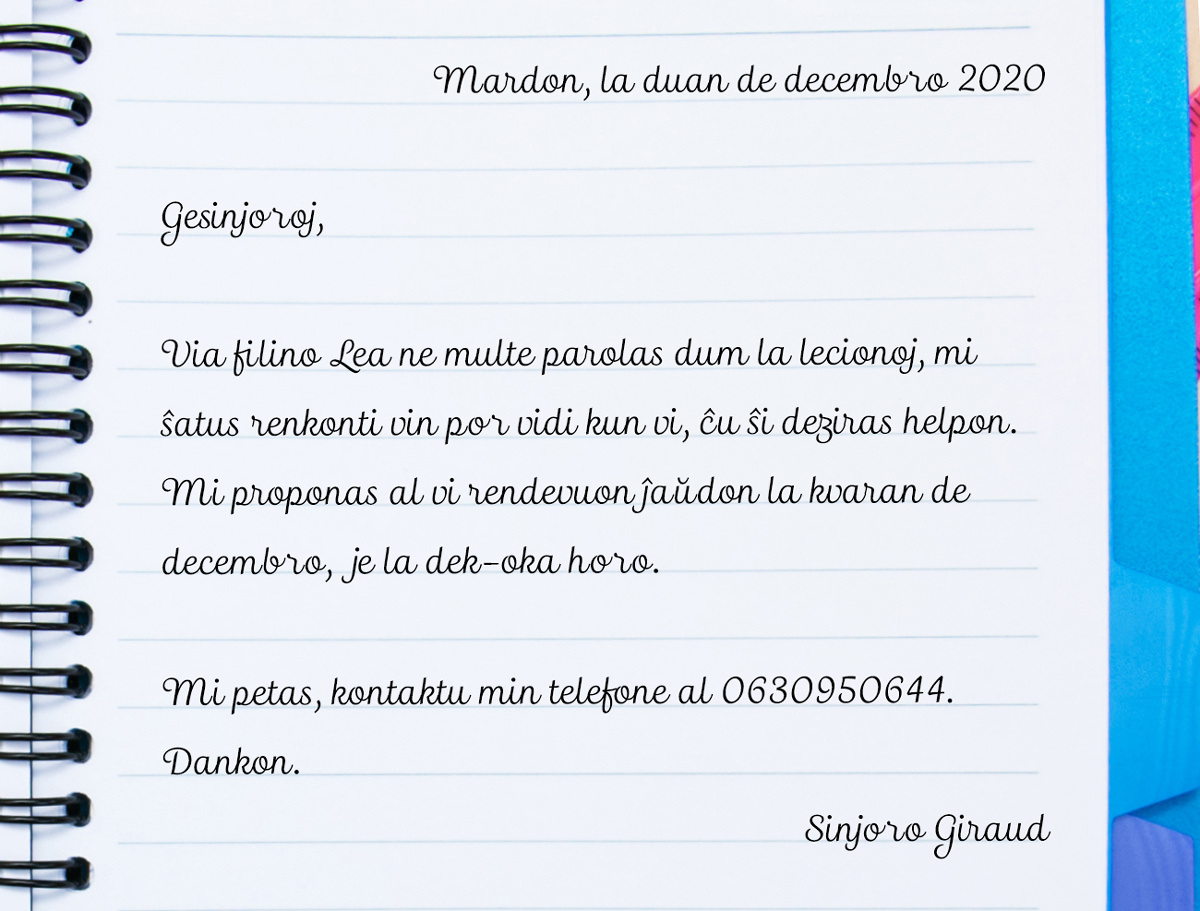 Mardon, la duan de decembro 2020
Gesinjoroj,
Via filino Lea ne multe parolas dum la lecionoj, mi
ŝatus renkonti vin por vidi kun vi, ĉu ŝi deziras helpon.
Mi proponas al vi rendevuon ĵaŭdon la kvaran de
decembro, je la dek-oka horo.
Mi petas, kontaktu min telefone al 0630950644.
Dankon.
Sinjoro Giraud